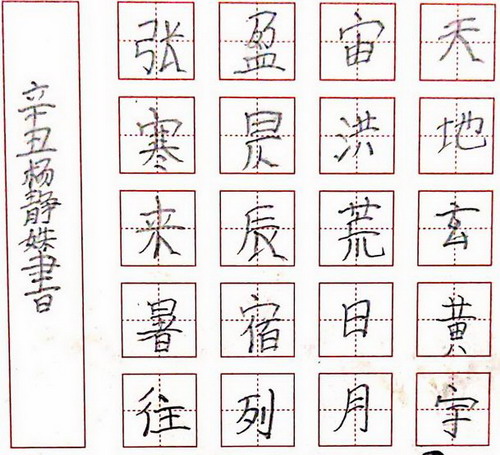 天地玄黄宇
宙洪荒日月
盈昃辰宿列
张寒来暑往
辛丑杨静姝書